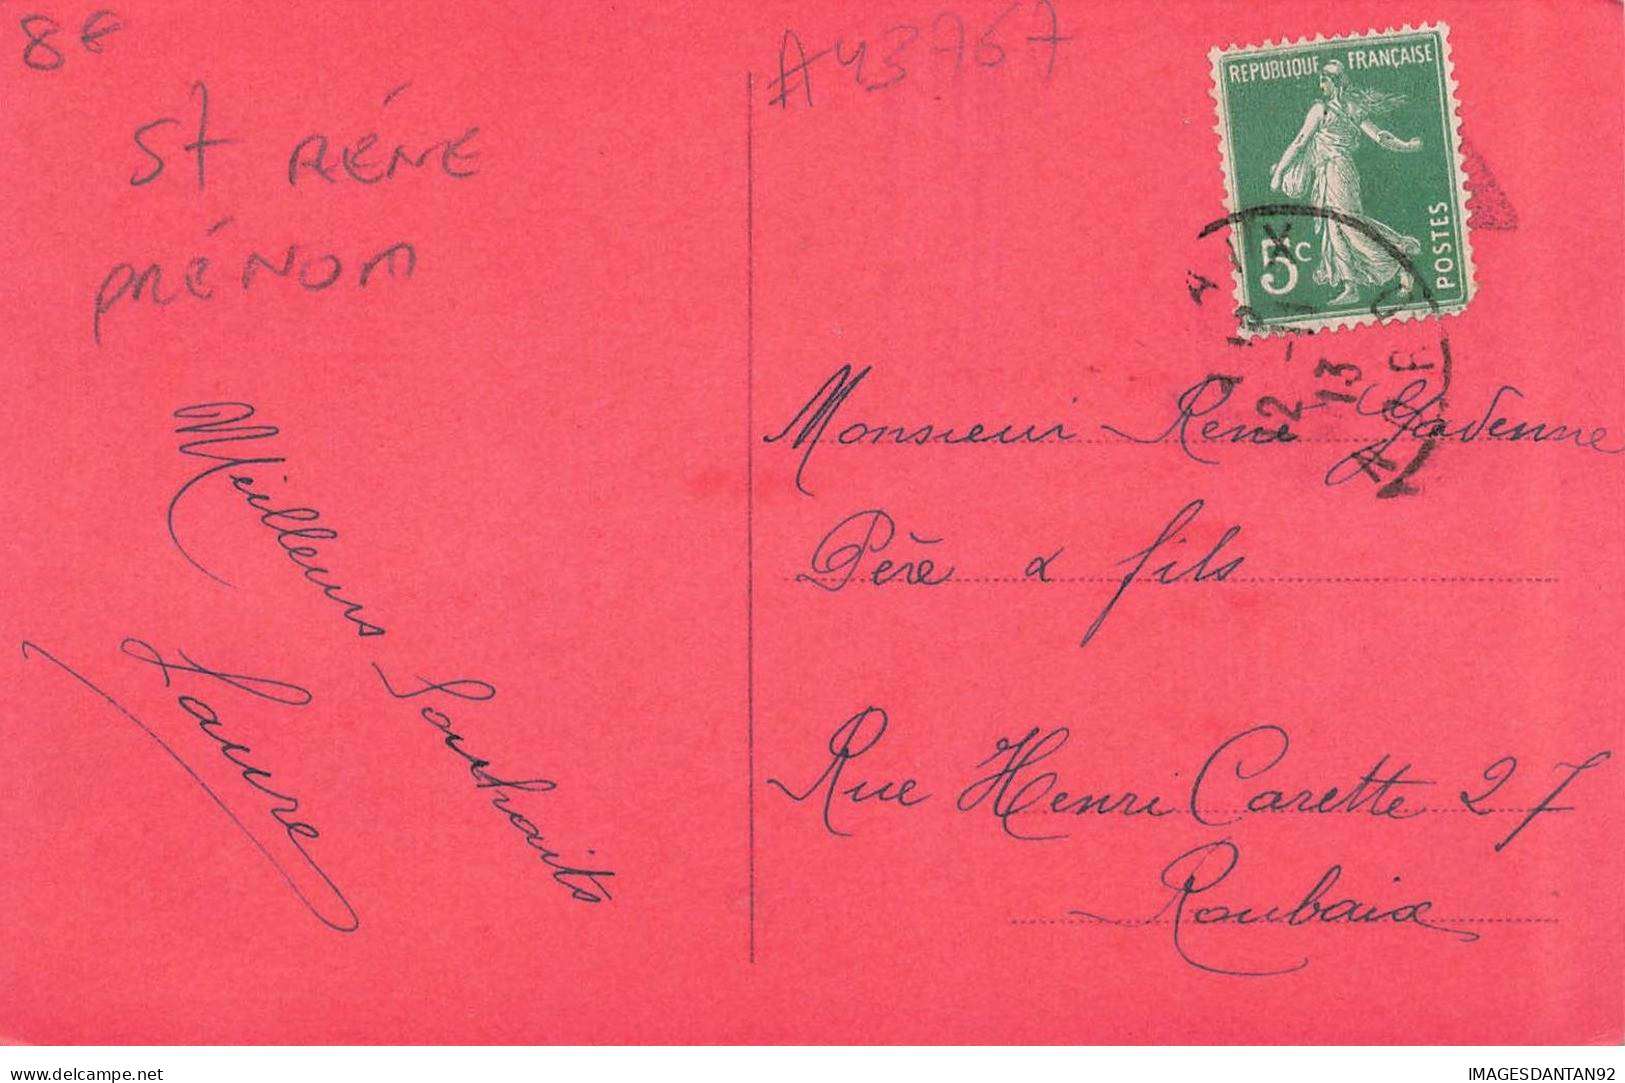 8€
ST RÉNE
PRÉNOM
Meilleurs Souhaits
Laure
A43767
REPUBLIQUE FRANÇAISE
5c
POSTES
12
13
Monsieur René Gadenne
Père & fils
Rue Henri Carette 27
Roubaix
delcampe.net
IMAGESDANTAN92